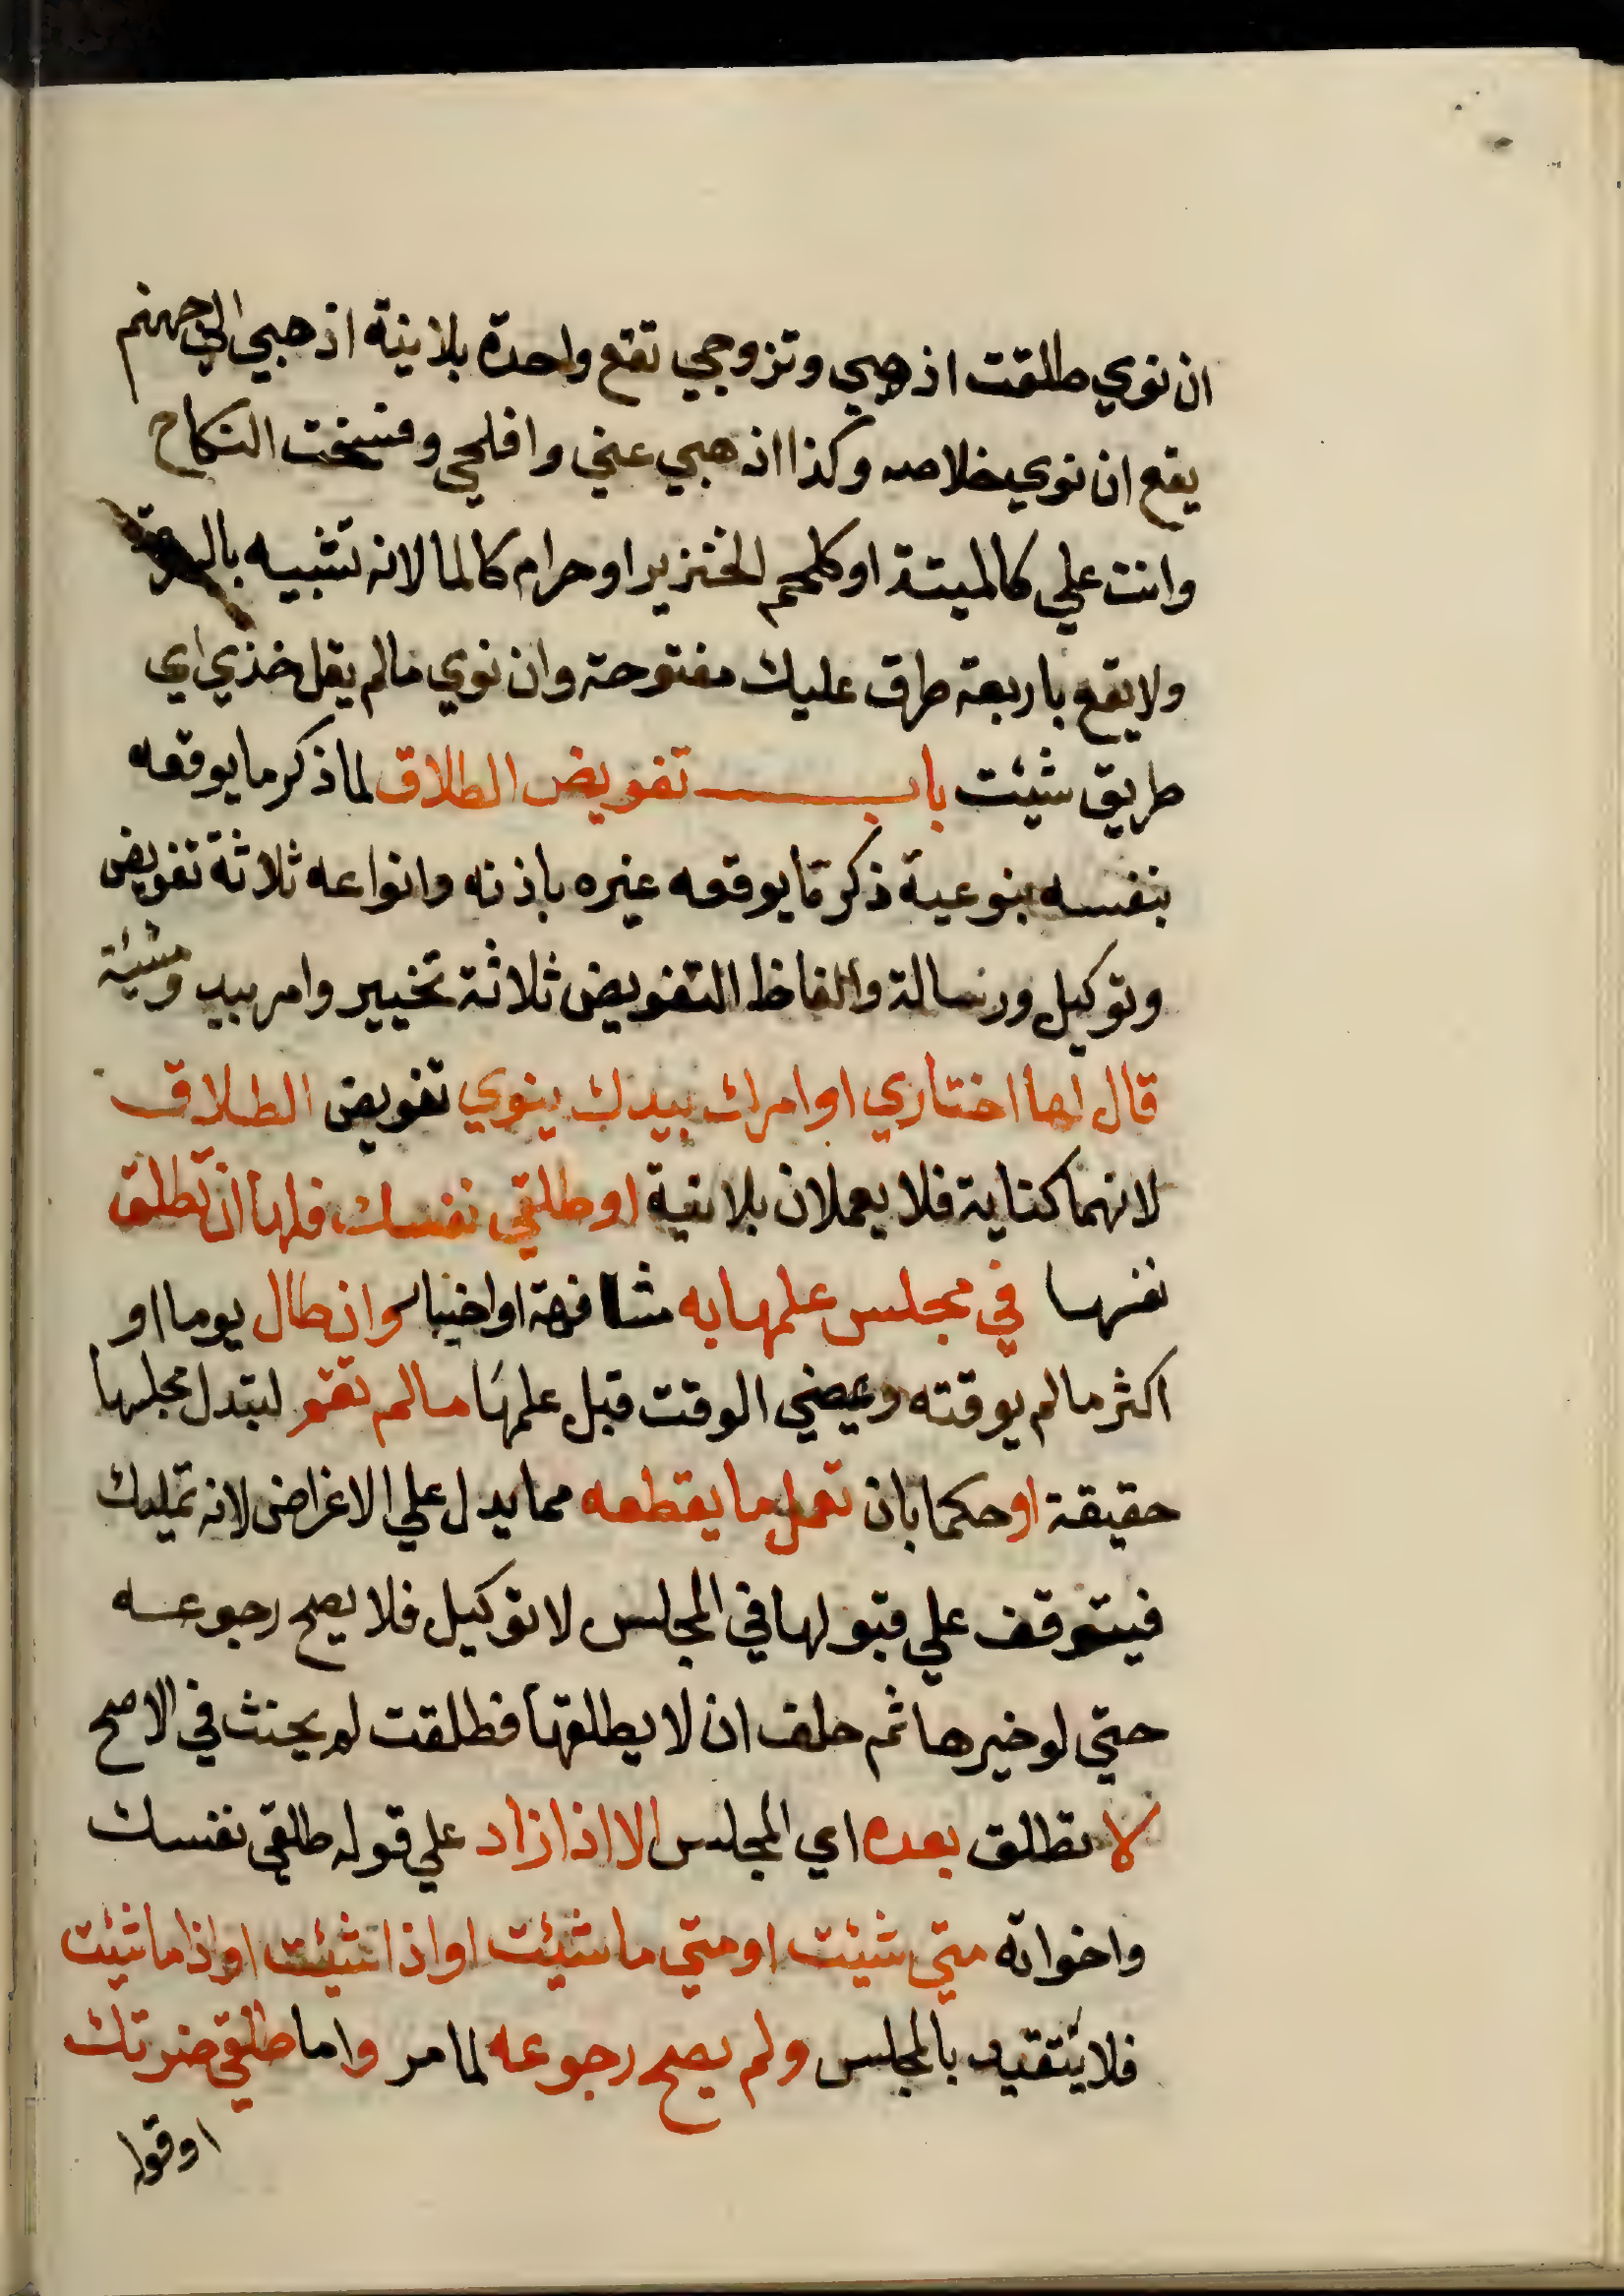 ان نوي طلقت اذهبي وتزوجي تقع واحدة بلا نية اذهبي الي جهنم
يقع ان نوي خلاصه وكذا اذهبي عني وافلحي وفسخت النكاح
وانت علي كالميتة او كلحم الخنزير او حرام كالما لانه تشبيه بالسرعة
ولا يقع باربعة طرق عليك مفتوحة وان نوي مالم يقل خذي اي
طريق شئت باب تفويض الطلاق لما ذكر ما يوقعه
بنفسه بنوعية ذكر ما يوقعه غيره باذنه وانواعه ثلاثة تفويض
وتوكيل ورسالة والفاظ التفويض ثلاثة تخيير وامر بيد ومشيئة
قال لها اختاري او امرك بيدك ينوي تفويض الطلاق
لانهما كناية فلا يعملان بلا نية او طلقي نفسك فلها ان تطلق
نفسها في مجلس علمها به مشافهة او اخبارا وان طال يوما او
اكثر مالم يوقته ويمضي الوقت قبل علمها مالم تقم لتبدل مجلسها
حقيقة او حكما بان تعمل ما يقطعه مما يدل علي الاعراض لانه تمليك
فيتوقف علي قبولها في المجلس لا توكيل فلا يصح رجوعه
حتي لو خيرها ثم حلف ان لا يطلقها فطلقت لم يحنث في الاصح
لا تطلق بعده اي المجلس الا اذا زاد علي قوله طلقي نفسك
واخواته متي شئت او متي ما شئت او اذا شئت او اذا ما شئت
فلا يتقيد بالمجلس ولم يصح رجوعه لما مر واما طلقي ضرتك
او قوله